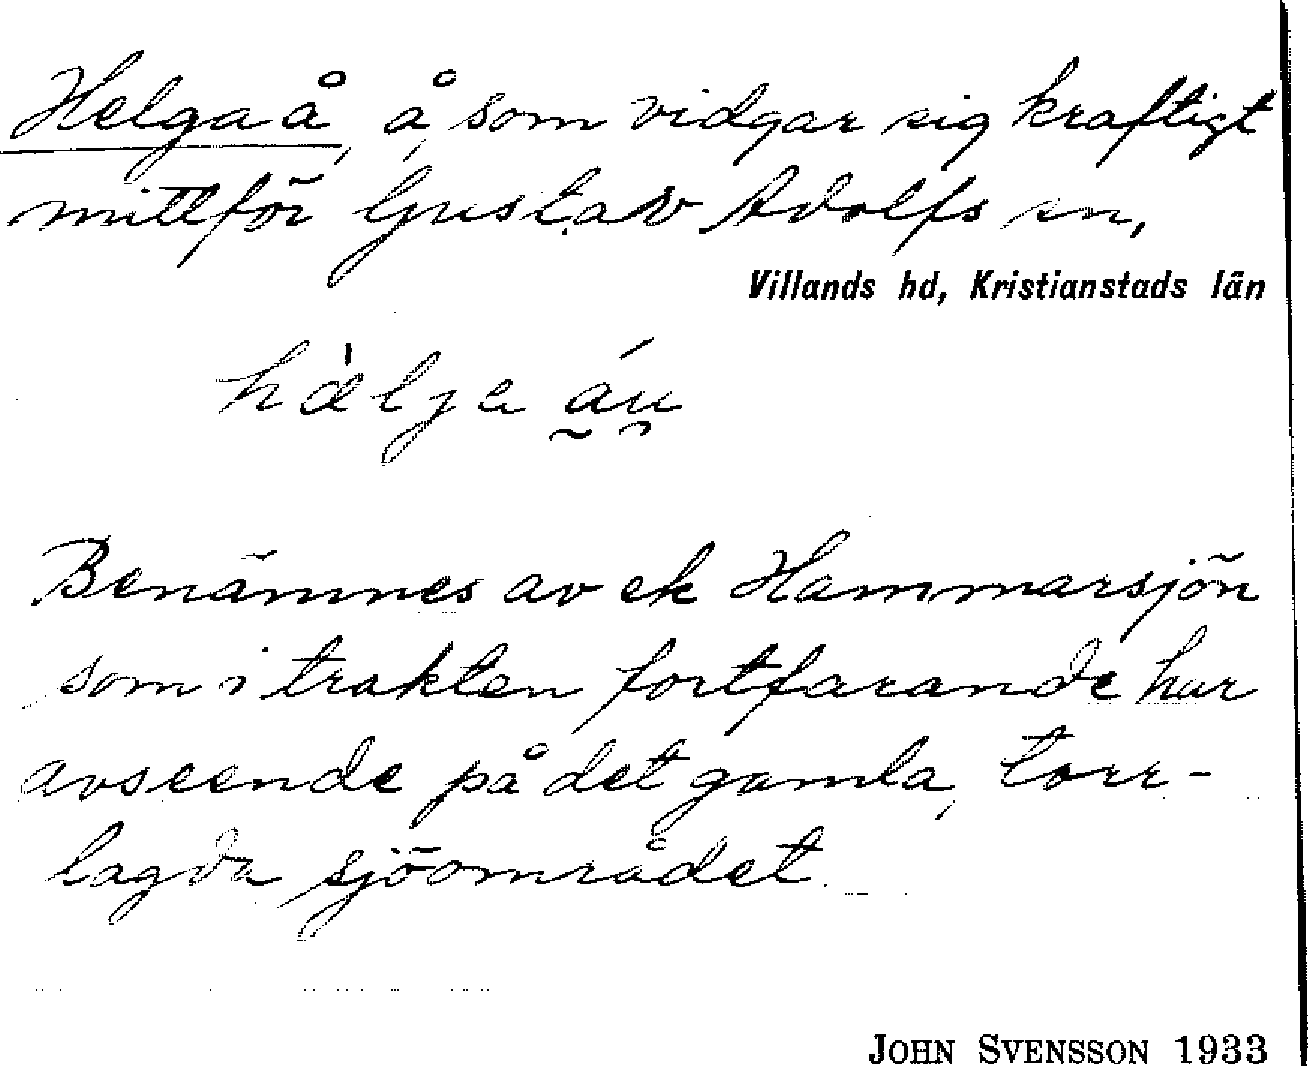 Helgaå, å, som vidgar sig kraftigt
mittför Gustav Adolfs sn,
Villands hd, Kristianstads län
hælja áu
Benämnes av ek Hammarsjön
som i trakten fortfarande har
avseende på det gamla, torr-
lagda sjöområdet.
JOHN SVENSSON 1933